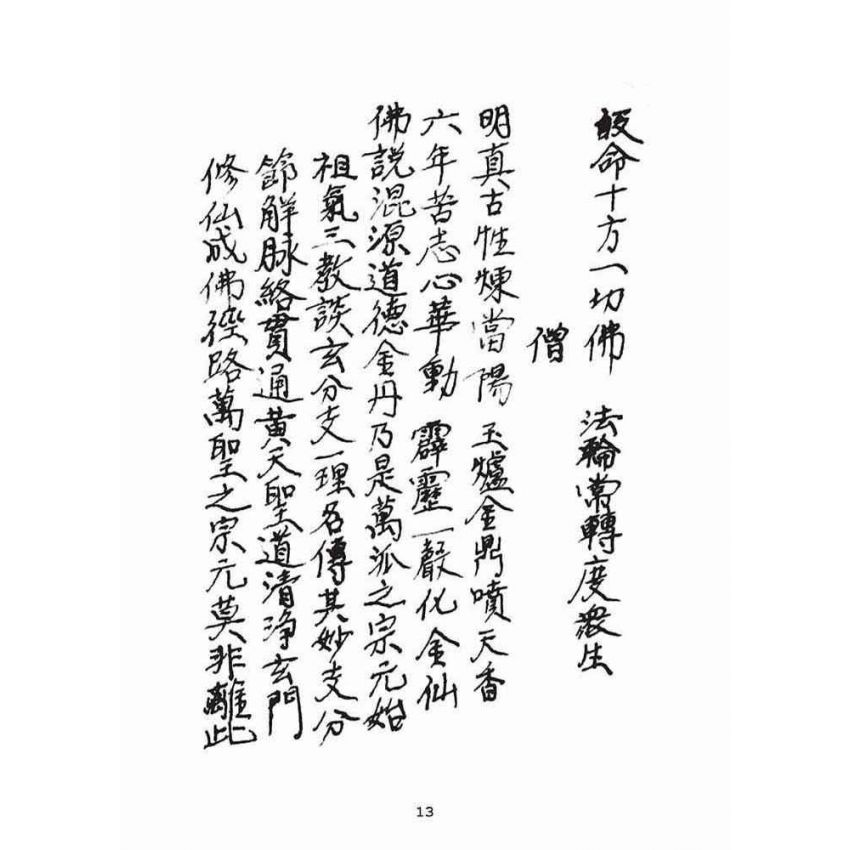 皈命十方一切佛　法輪常轉度眾生
僧
明真古性煉當陽　玉爐金鼎噴天香
六年苦志心華動　霹靂一聲化金仙
佛説混源道德金丹乃是萬派之宗元始
祖氣三教談玄分支一理名傳其妙支分
節解脉絡貫通黄天聖道清淨玄門
修仙成佛徑路萬聖之宗元莫非離此
13